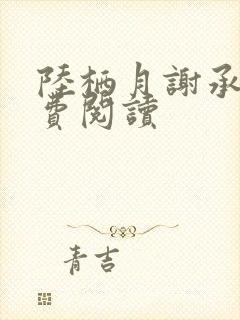 陸栖月謝承
費閱讀
青吉